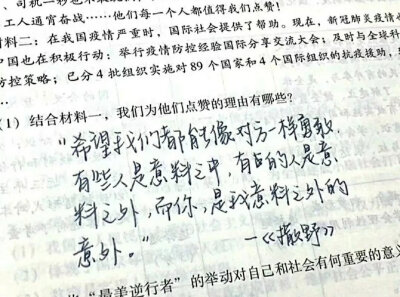 工人通宵奋战……他们每一个人都值得我们点赞!
材料二:在我国疫情严重时,国际社会提供了帮助。现在,新冠肺炎疫情
中国也在积极行动:举行疫情防控经验国际分享交流大会;及时与全球科
防控策略;已分4批组织实施对89个国家和4个国际组织的抗疫援助,
(1)结合材料一,我们为他们点赞的理由有哪些?
"希望我们都能像对方一样勇敢.
有些人是意料之中,有的人是意
料之外,而你,是我意料之外的
意外。"
—《撒野》
“最美逆行者”的举动对自己和社会有何重要的意